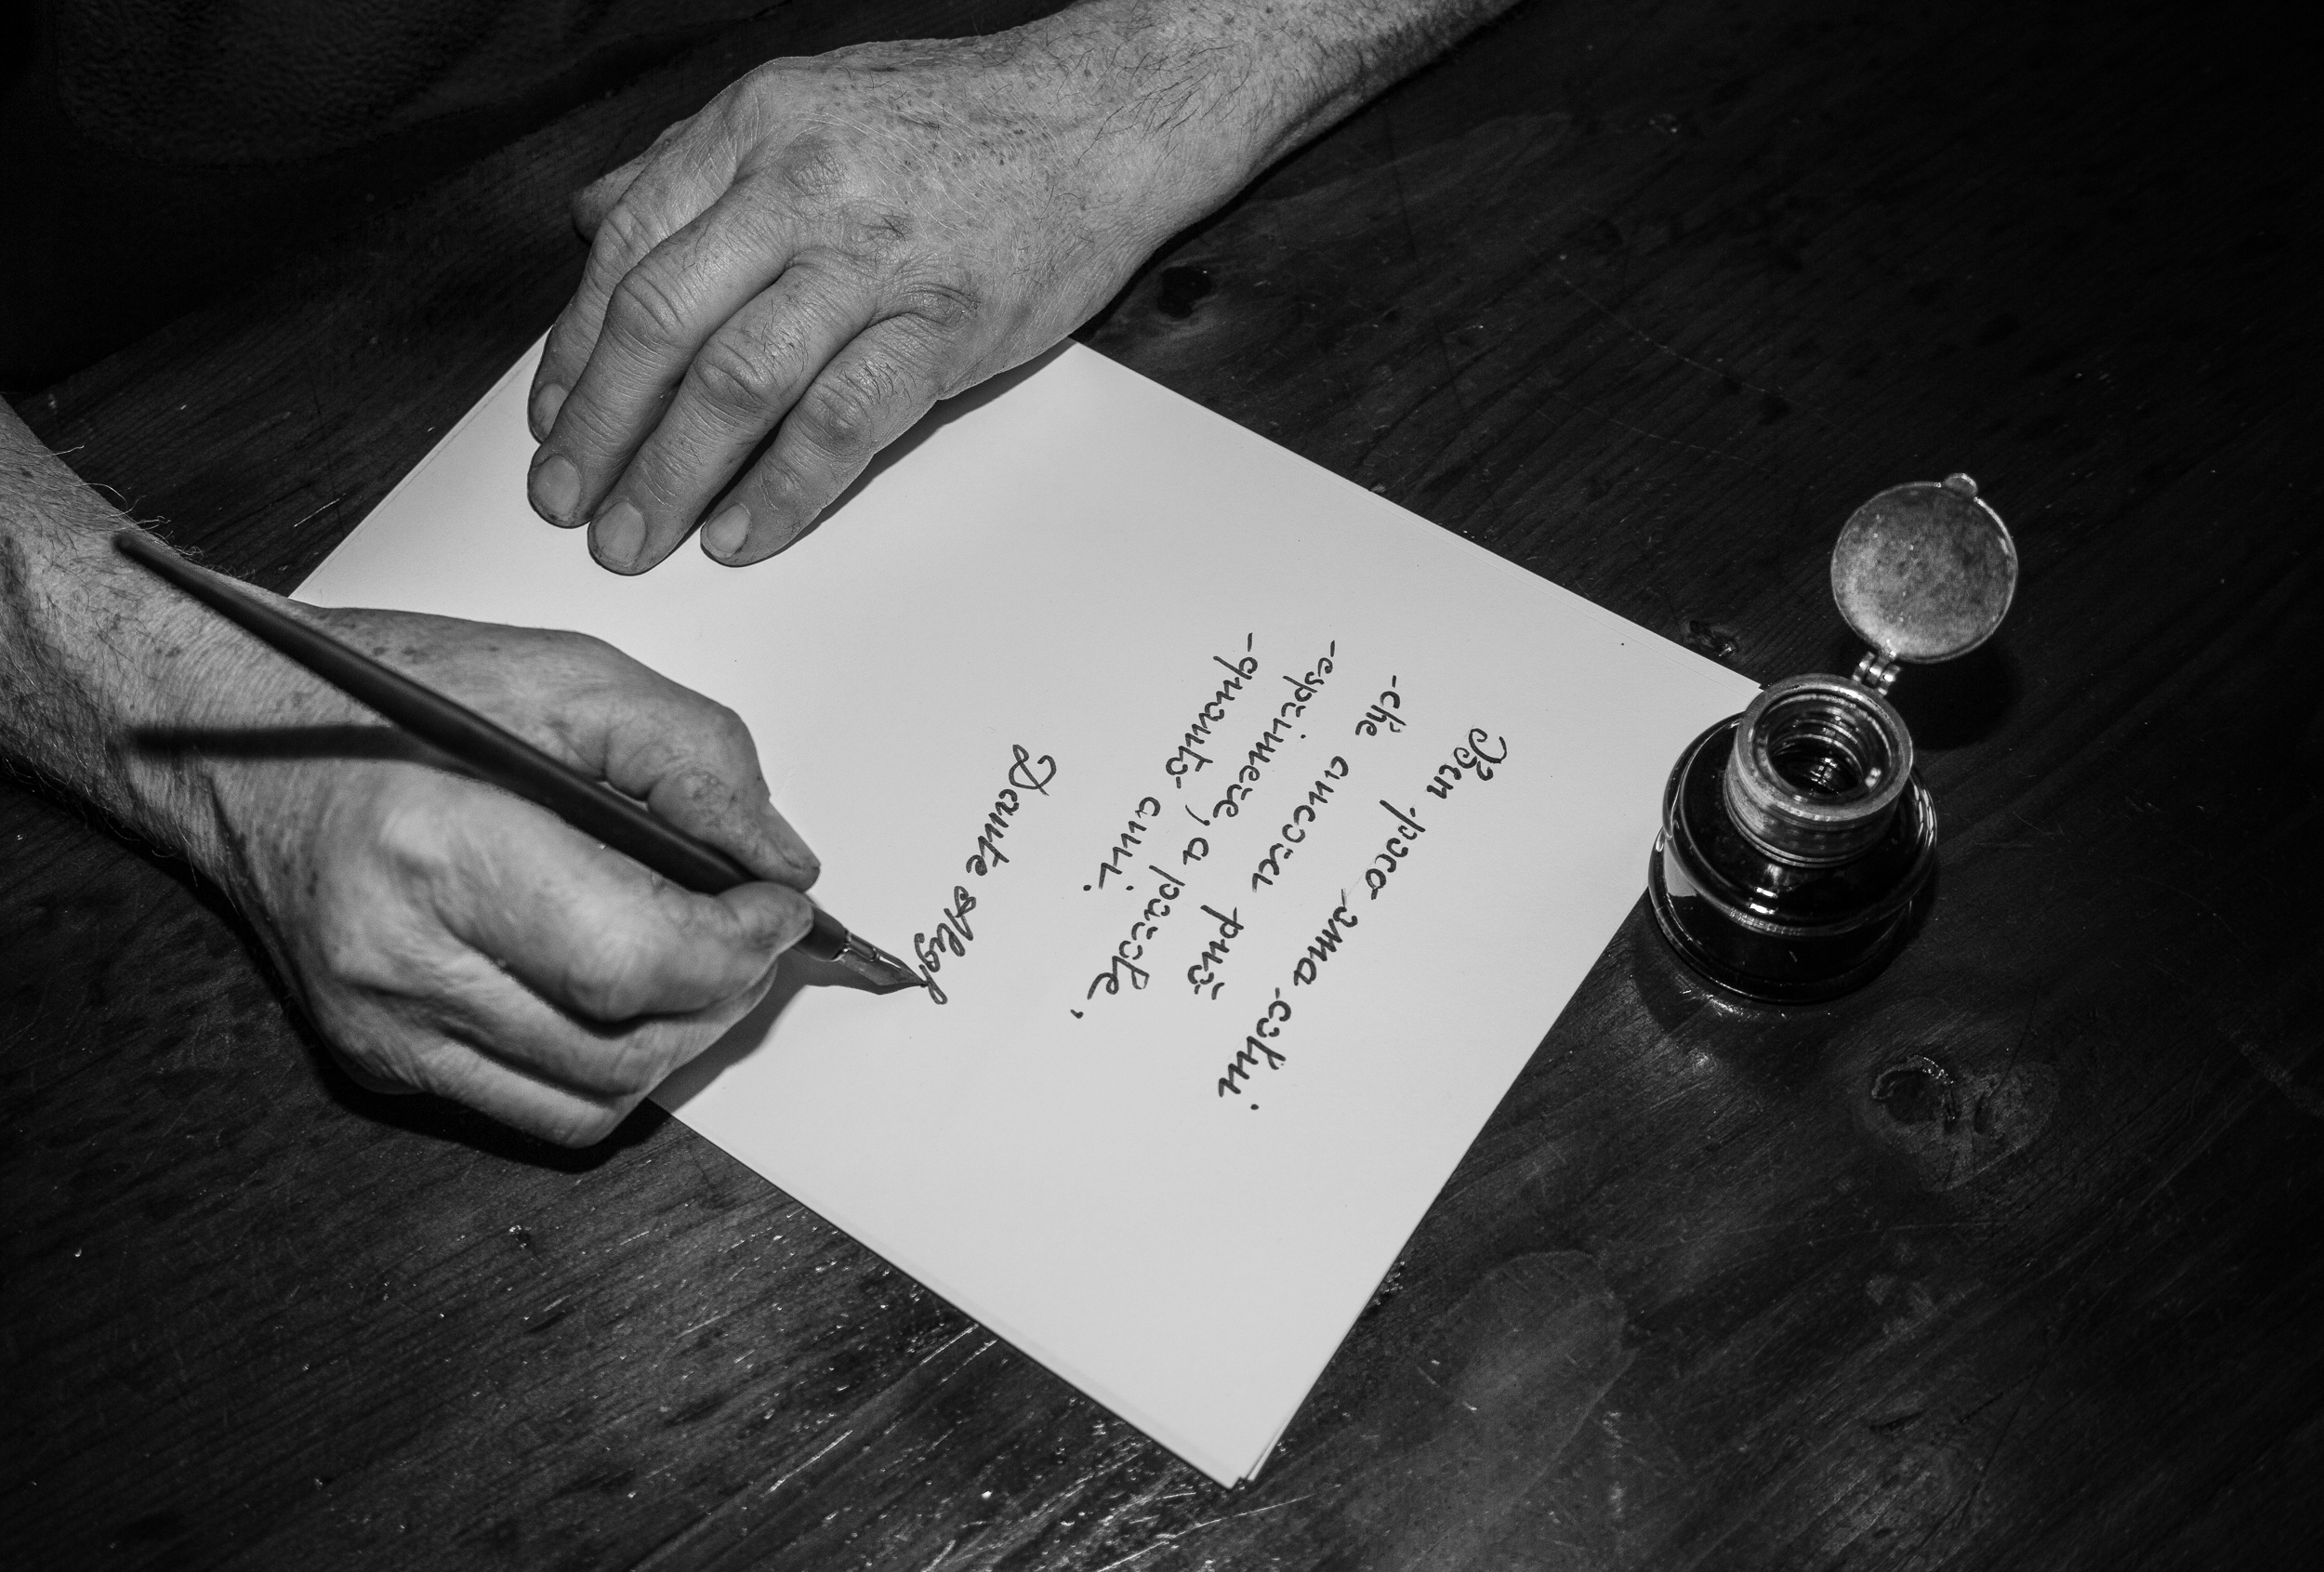 Ben poco ama colui
-che ancora può
-esprimere, a parole,
-quanto ami.
Dante Aligh